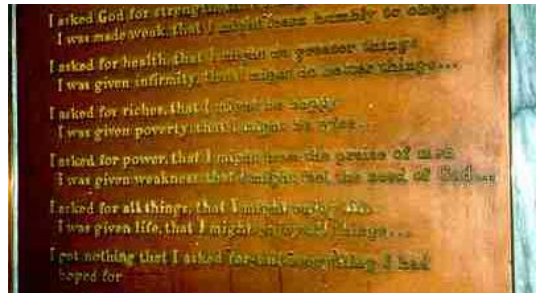 I asked God for strength, that I might
I was made weak, that I might learn humbly to obey...
I asked for health, that I might do greater things
I was given infirmity, that I might do better things...
I asked for riches, that I might be happy
I was given poverty, that I might be wise...
I asked for power, that I might have the praise of men
I was given weakness, that I might feel the need of God...
I asked for all things, that I might enjoy life
I was given life, that I might enjoy all things...
I got nothing that I asked for but everything I had
hoped for